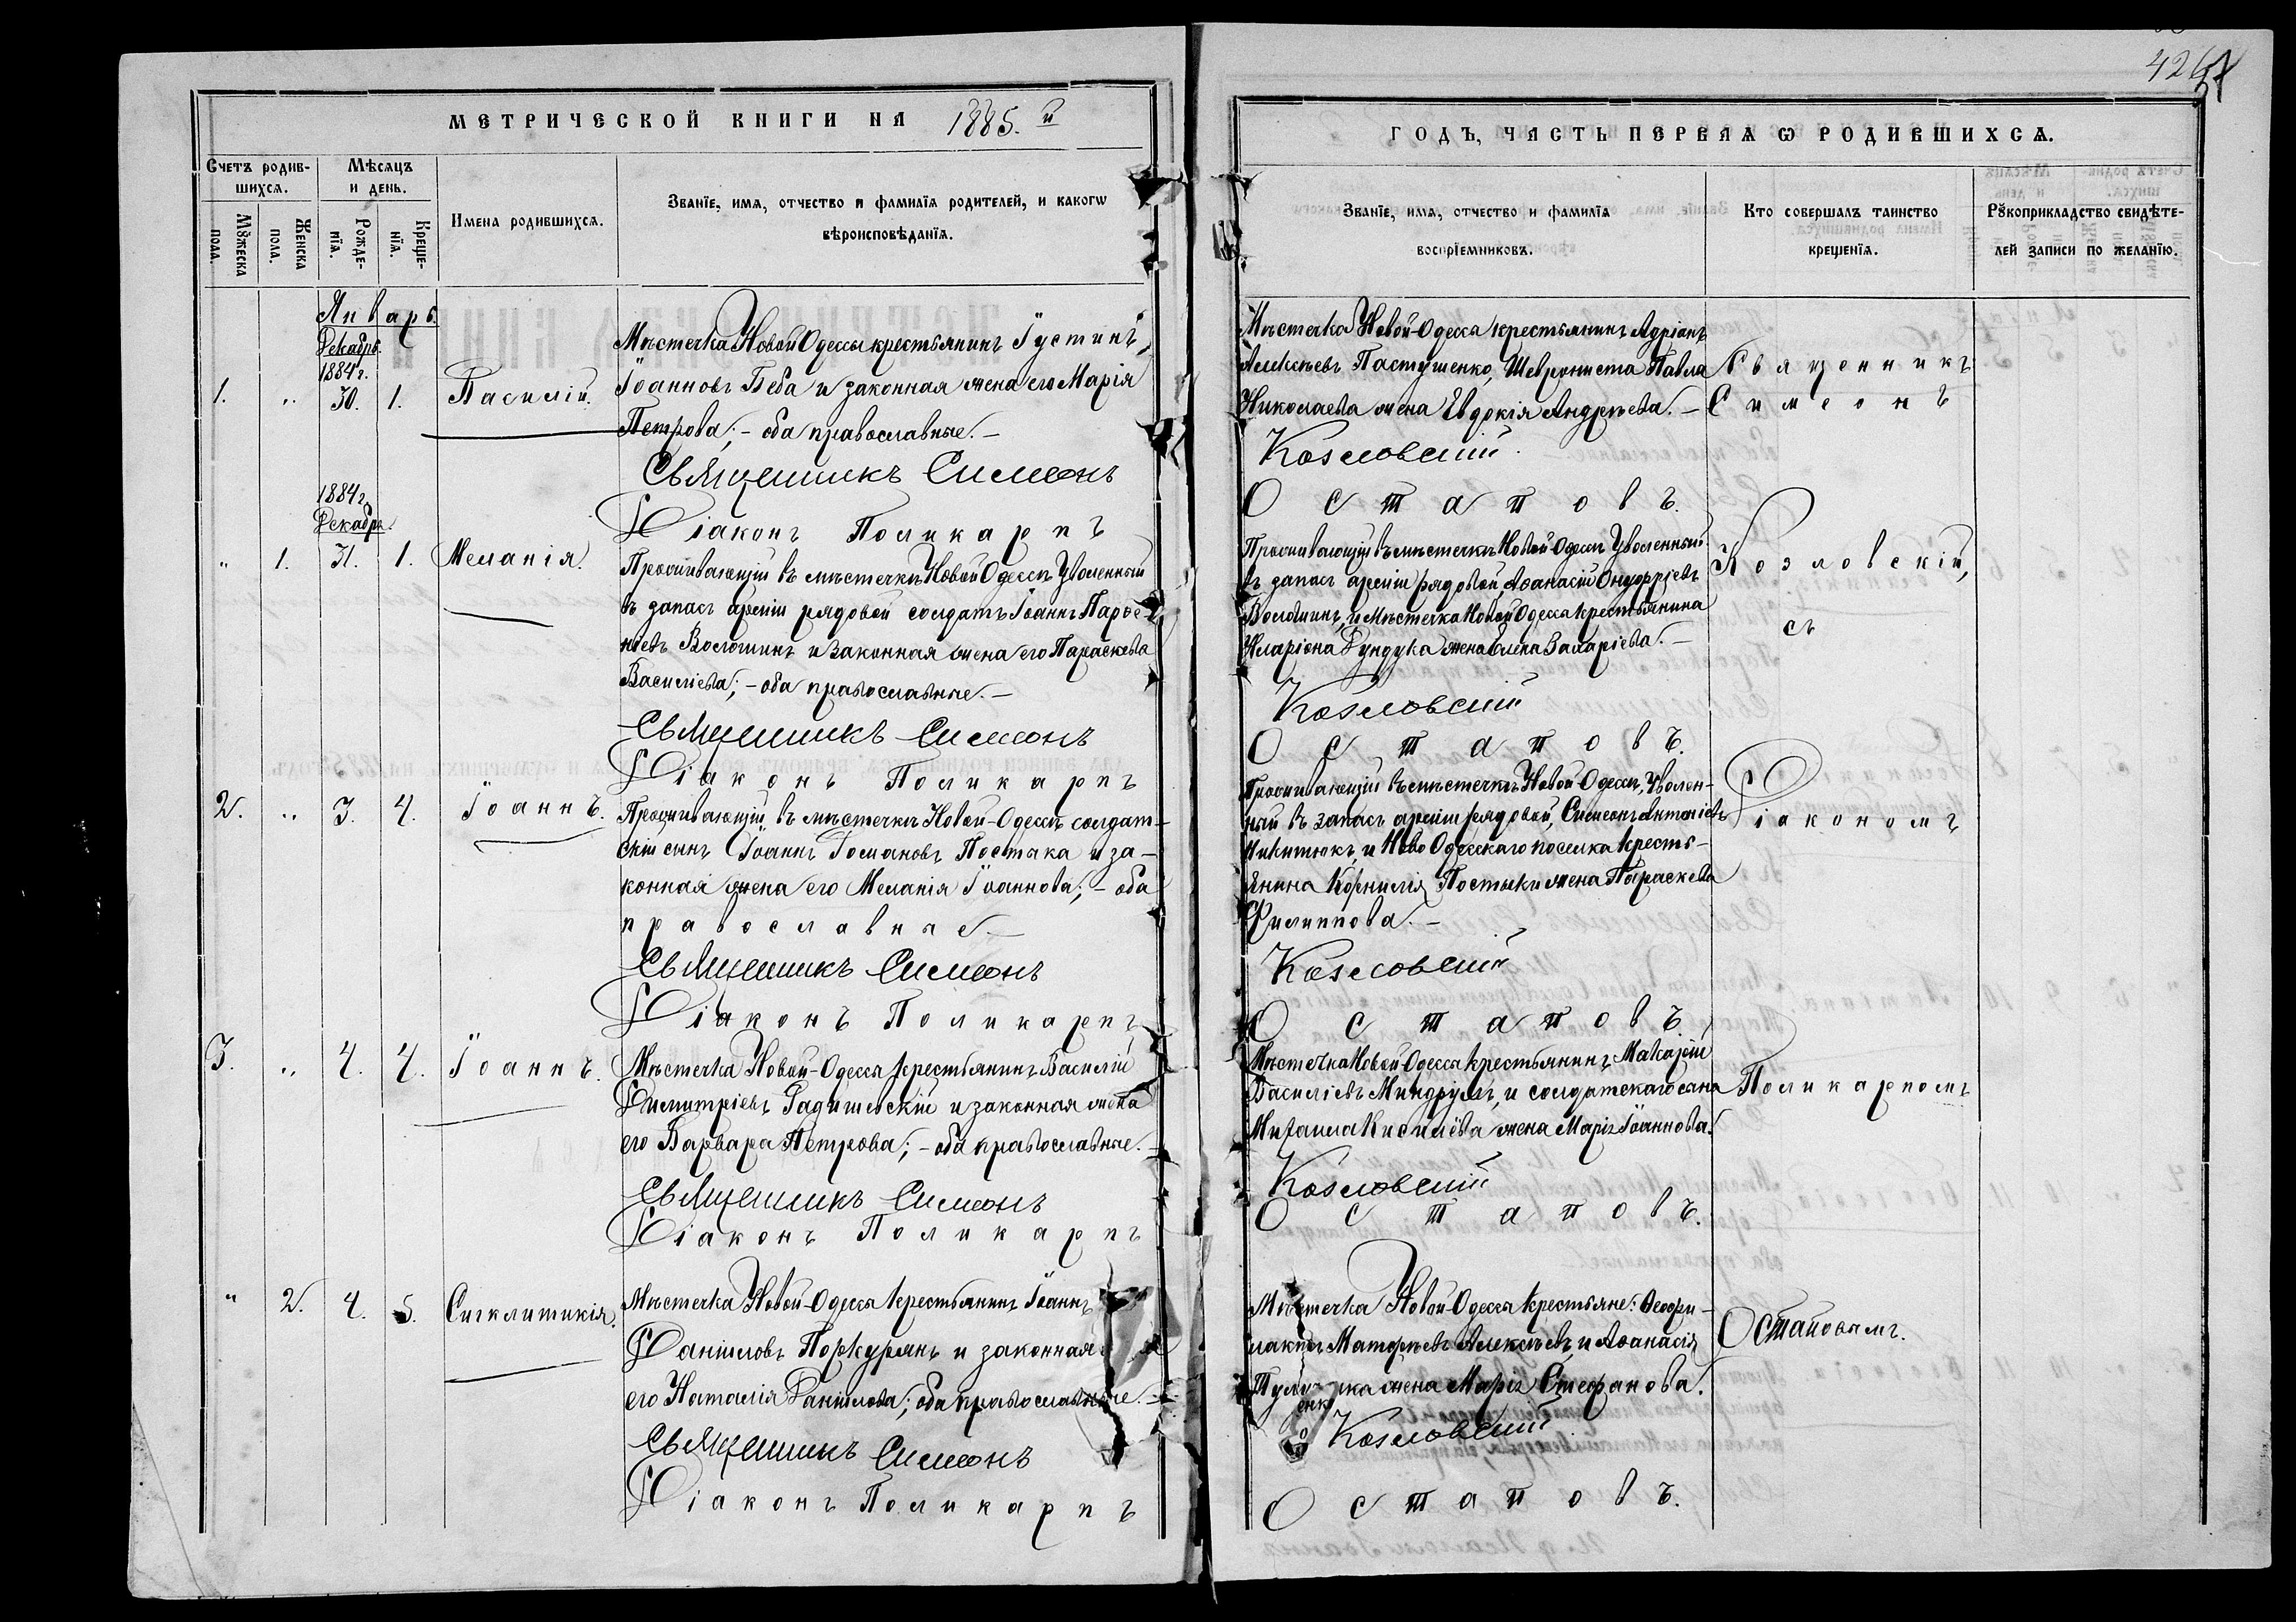 426
МЕТРИЧЕСКОЙ КНИГИ НА 1885.й
Счетъ родив-
шихся.
Мѣсяцъ
и день.
Мꙋжеска
пола.
Женска
пола.
Рожде-
нїя.
Креще-
нїя.
Имена родившихся.
Званїе, имя, отчество и фамилїя родителей, и какогѡ
вѣроисповѣданїя.
Январь.
Декабрь.
1884 г.
1. „ 30. 1. Василій.
Мѣстечка Новой Одессы крестьянинъ Іустинъ
Іоанновъ Беба и законная жена его Марія
Петрова; – оба православные. –
Священникъ Симеонъ
Діаконъ Поликарпъ
1884 г.
Декабрь.
„ 1. 31. 1. Меланія.
Проживающій въ мѣстечкѣ Новой Одессѣ Уволенный
въ запасъ арміи рядовой солдатъ Іоаннъ Парѳе-
ніевъ Волошинъ и законная жена его Параскева
Василіева; – оба православные. –
Священникъ Симеонъ
Діаконъ Поликарпъ
2. „ 3. 4. Іоаннъ.
Проживающій въ мѣстечкѣ Новой-Одессѣ солдат-
скій сынъ Іоаннъ Романовъ Постыка и за-
конная жена его Меланія Іоаннова; – оба
православные. –
Священникъ Симеонъ
Діаконъ Поликарпъ
3. „ 4. 4. Іоаннъ.
Мѣстечка Новой-Одессы крестьянинъ Василій
Димитріевъ Радишевскій и законная жена
его Варвара Петрова; – оба православные. –
Священникъ Симеонъ
Діаконъ Поликарпъ
„ 2. 4. 5. Сигклитикія.
Мѣстечка Новой-Одессы крестьянинъ Іоаннъ
Даніиловъ Поркурянъ и законная
его Наталія Даніилова; оба православные. –
Священникъ Симеонъ
Діаконъ Поликарпъ
ГОДЪ, ЧАСТЬ ПЕРВАЯ Ѡ РОДИВШИХСЯ.
Званїе, имя, отчество и фамилїя
воспрїемниковъ.
Кто совершалъ таинство
крещенїя.
Рꙋкоприкладство свидѣте-
лей записи по желанїю.
Мѣстечка Новой-Одессы крестьянинъ Адріанъ
Алексѣевъ Пастушенко, Шеврониста Павла
Николаева жена Евдокія Андреева. –
Козловскій
Остаповъ.
Проживающій въ мѣстечкѣ Новой-Одессѣ Уволенный
въ запасъ арміи рядовой, Аѳанасій Онуфріевъ
Волошинъ, и Мѣстечка Новой Одессы крестьянина
Иларіона Дундука жена Елена Захаріева. –
Козловскій
Остаповъ.
Проживающій въ мѣстечкѣ Новой-Одессѣ, Уволен-
ный въ запасъ арміи рядовой, Симеонъ Антоніевъ
Никитюкъ, и Ново Одесскаго поселка кресть-
янина Корнилія Постыки жена Параскева
Филиппова. –
Козловскій
Остаповъ.
Мѣстечка Новой-Одессы крестьянинъ Макарій
Василіевъ Миндрулъ, и солдатскаго сына
Михаила Кисилёва жена Марія Іоаннова.
Козловскій
Остаповъ.
Мѣстечка Новой-Одессы крестьяне: Ѳеофи-
лактъ Матфеевъ Алексѣевъ, и Аѳанасія
жена Марія Стефанова.
Козловскій
Остаповъ.
Священникъ
Симеонъ
Козловскій,
съ
Діакономъ
Поликарпомъ
Остаповымъ.